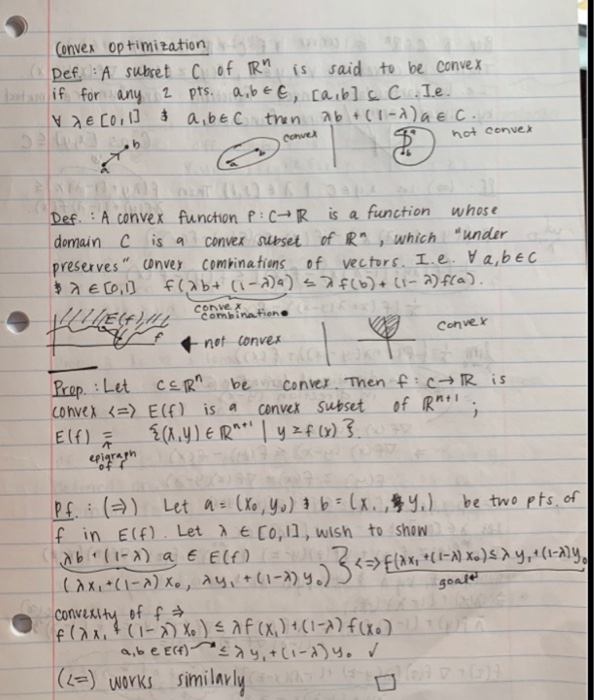 Convex optimization
Def. : A subset C of ℝⁿ is said to be convex
if for any 2 pts. a,b ∈ C, [a,b] ⊆ C. I.e.
∀ λ ∈ [0,1] & a,b ∈ C then λb + (1-λ)a ∈ C.
a b convex not convex
Def. : A convex function f : C → ℝ is a function whose
domain C is a convex subset of ℝⁿ, which "under
preserves" convex combinations of vectors. I.e. ∀ a,b ∈ C
& λ ∈ [0,1] f(λb + (1-λ)a) ≤ λf(b) + (1-λ)f(a).
convex combination
E(f) f ← not convex convex
Prop. : Let C ⊆ ℝⁿ be convex. Then f : C → ℝ is
convex <=> E(f) is a convex subset of ℝⁿ⁺¹ ;
E(f) = {(x,y) ∈ ℝⁿ⁺¹ | y ≥ f(x)}.
epigraph of f
Pf. : (⇒) Let a = (x₀, y₀) & b = (x₁, y₁) be two pts. of
f in E(f). Let λ ∈ [0,1], wish to show
λb + (1-λ) a ∈ E(f)
(λx₁ + (1-λ) x₀, λy₁ + (1-λ) y₀) } <=> f(λx₁ + (1-λ) x₀) ≤ λ y₁ + (1-λ) y₀
goal
convexity of f ⇒
f(λx₁ + (1-λ) x₀) ≤ λf(x₁) + (1-λ) f(x₀)
a,b ∈ E(f) → ≤ λ y₁ + (1-λ) y₀ ✓
(<=) works similarly □